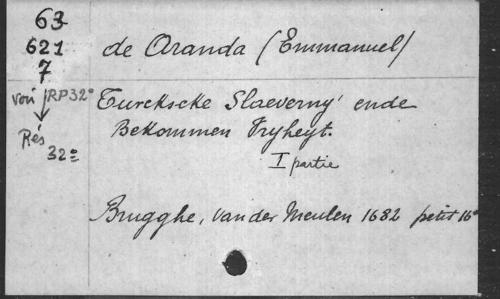 63
621
7
voir RP 32°
Rés
32°
de Aranda (Emmanuel)
Turckscke Slaeverny' ende
Bekommen Vryheyt.
I partie
Brugghe, van der Meulen 1682 petit 16°